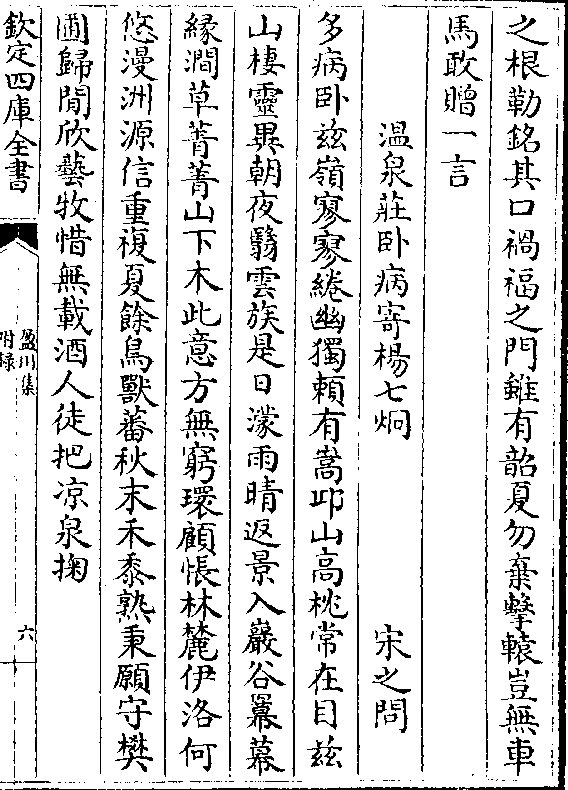 之根勒銘其口禍福之門雖有韶夏勿棄擊轅豈無車
馬敢贈一言
溫泉莊卧病寄楊七炯　宋之問
多病卧兹嶺寥寥綣幽獨頼有嵩邙山高枕常在目兹
山棲靈異朝夜翳雲族是日濛雨晴返景入巖谷羃幕
緣澗草菁菁山下木此意方無窮環顧悵林麓伊洛何
悠漫洲源信重複夏餘鳥獸蕃秋末禾黍熟秉願守樊
圃歸閒欣藝牧惜無載酒人徒把凉泉掬
欽定四庫全書
盈川集
附録
六